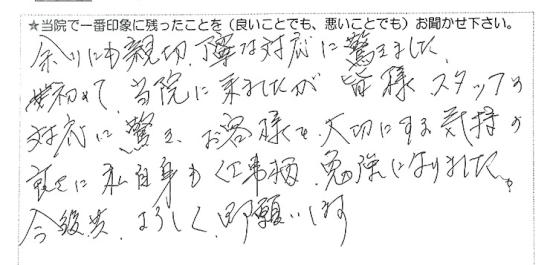 ★当院で一番印象に残ったことを（良いことでも、悪いことでも）お聞かせ下さい。
余りにも親切、丁寧な対応に驚きました。
初めて、当院に来ましたが 皆様 スタッフの
対応に驚き、お客様を、大切にする気持の
良さに 私自身も 仕事柄、勉強になりました。
今後共、よろしく、御願いします